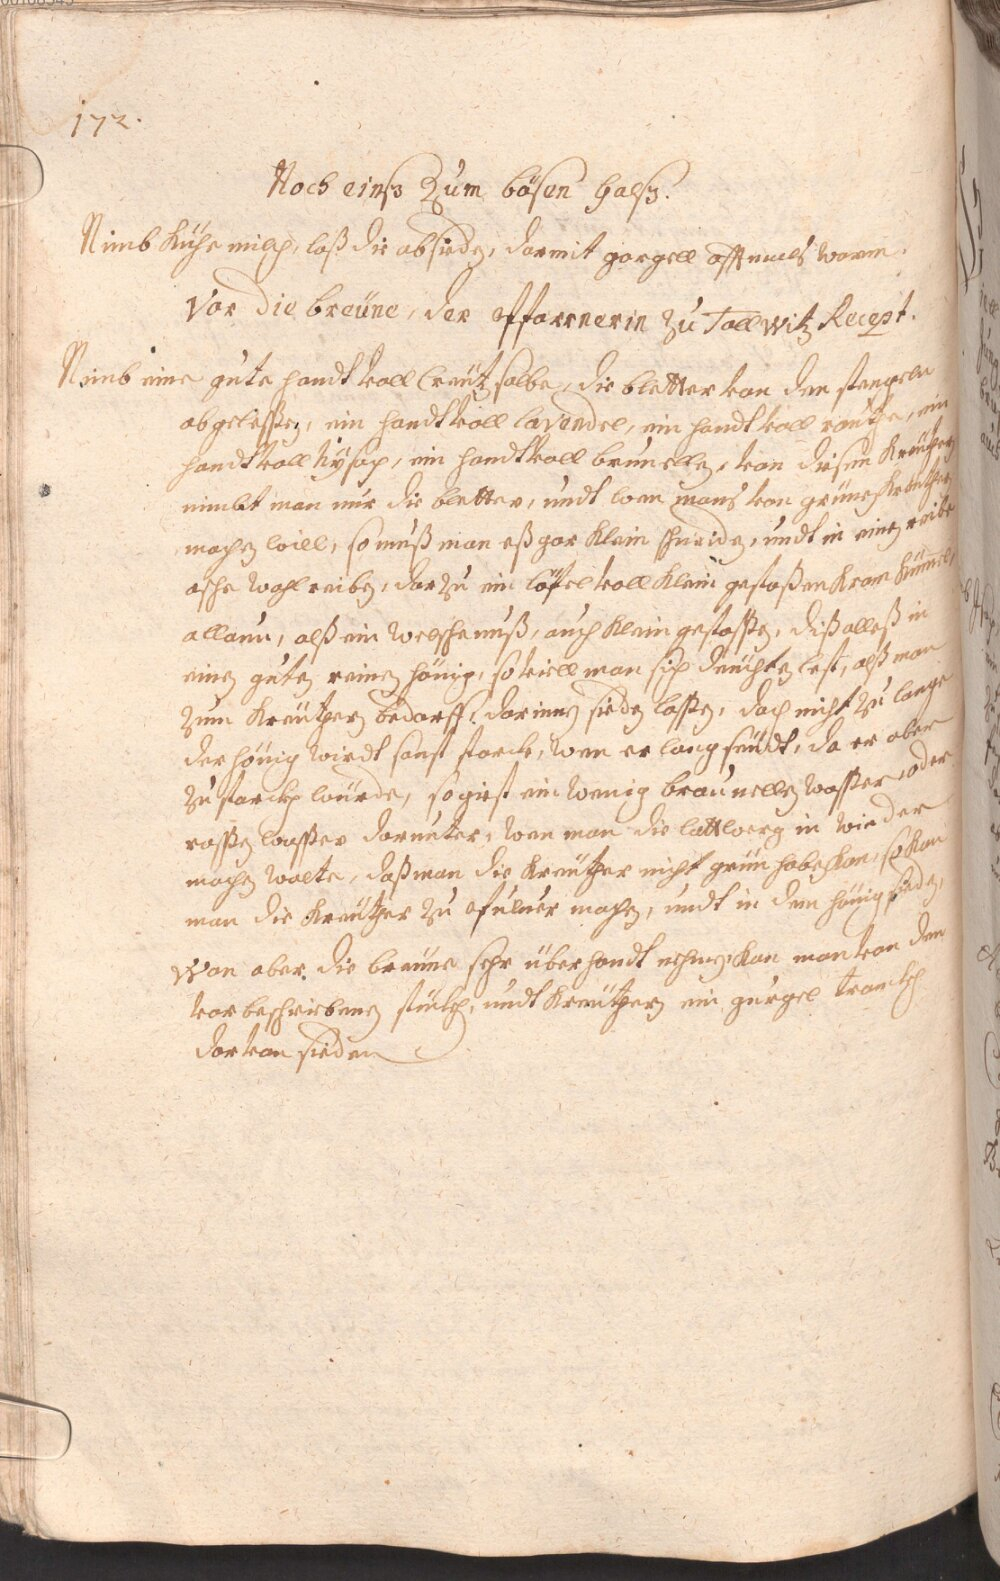 172.
Noch einß Zum bösen halß.
Nimb Kühe milch, laß die absieden, darmit gorgell offtmals warm.
Vor die breüne, der Pfarrnerin zu Tallwitz Recept.
Nimb eine gute handt voll Creütz salbe, die bletter von den stengeln
abgelesßen, ein handt voll lavendel, ein handt voll rauthe, ein
handt voll Hysop, ein handt voll brunellen, von diesen Kreütgern
nimbt man nur die bletter, undt wen mans von grünen Kreutgern
machen will, so muß man eß gar klein schneiden, undt in einen reibe
asche wohl reiben, darzu ein löfel voll klein gestoßen Kram Kümmel,
allaun, alß ein welsche nuß, auch klein gestoßen, diß alleß in
einen guten reinen hönig, so viell man sich deüchten lest, alß man
zum Kreütgern bedarff, darinnen sieden lassen, doch nicht zu lange
der hönig wirdt sonst starck, wen er lang seüdt, da er aber
zu starck würde, so giest ein wenig braunellen wasser oder
rossen wasser darunter, wen man die lattwerg in wieder
machen wolte, daß man die Kreütger nicht grün haben kan, so kan
man die Kreütger zu Pulver machen, undt in dem hönig sieden,
Wan aber die breüne sehr überhandt nehmen kan man von den
vor beschriebenen stücken, undt Kreütgern ein gurgel tranck
darvon sieden